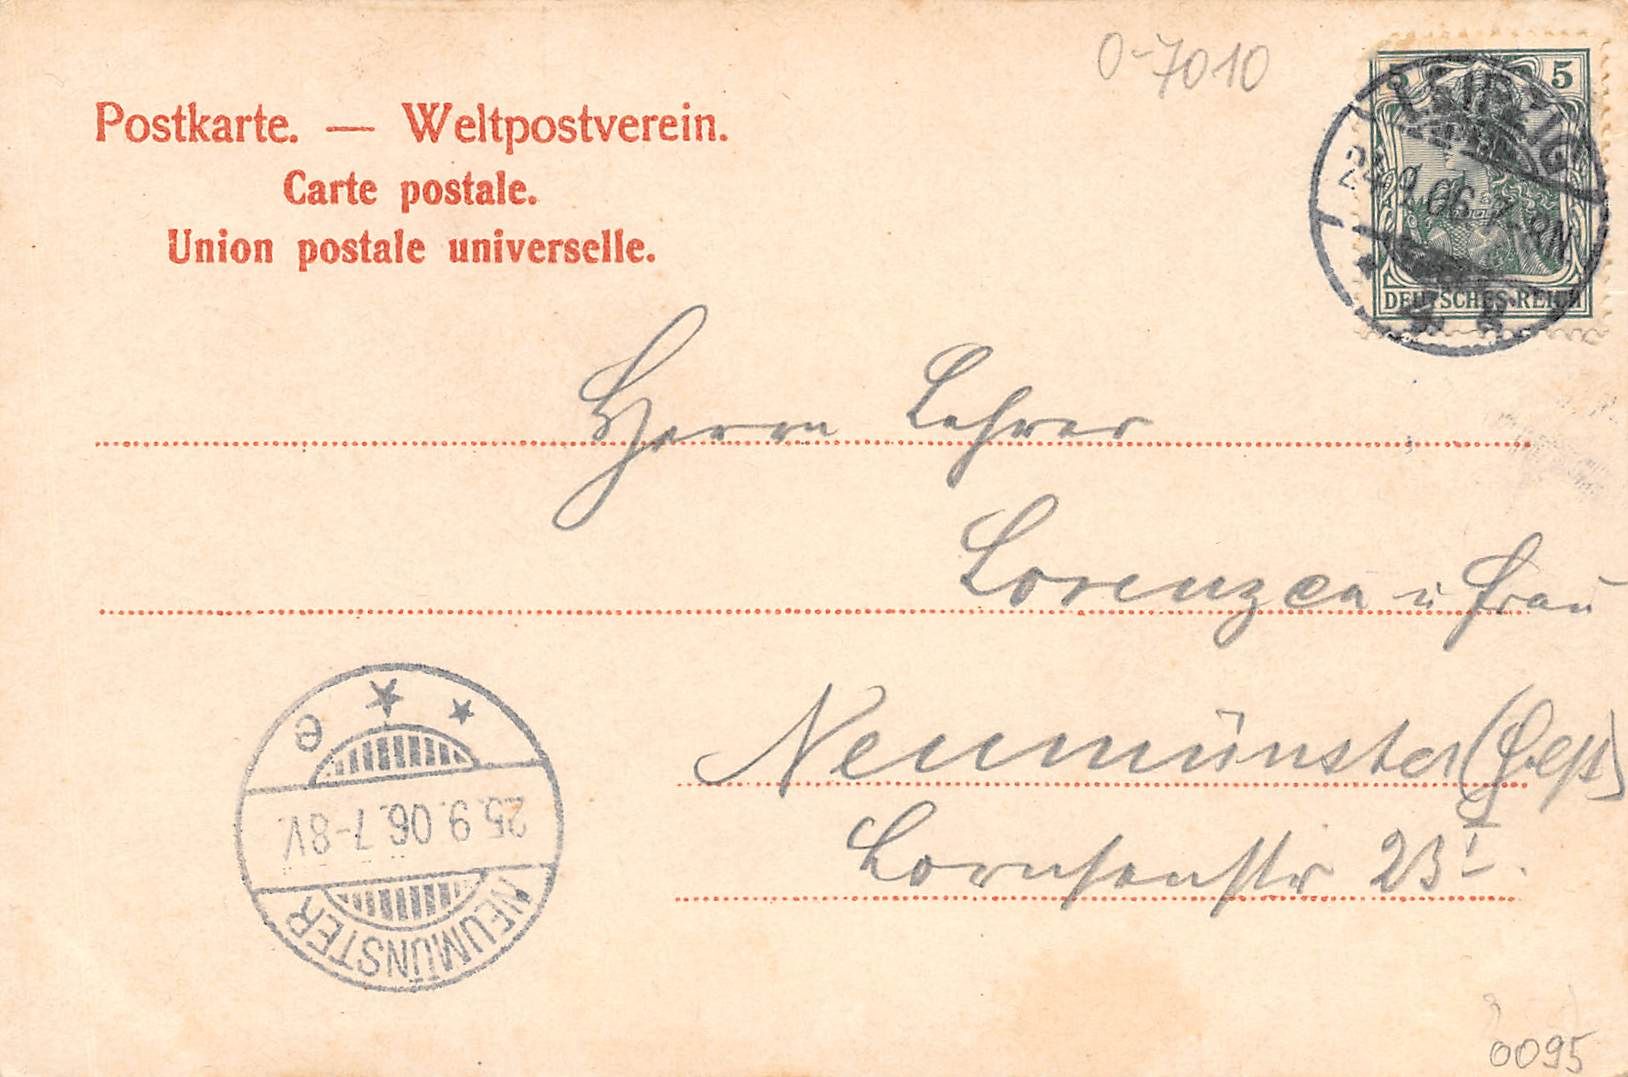 0-7010
Postkarte. — Weltpostverein.
Carte postale.
Union postale universelle.
5 5
LEIPZIG
24.9.06. 7-8N
DEUTSCHES REICH
Herrn Lehrer
Lorenzen u Frau
Neumünster (Holst)
Lornsenstr 23 I.
e
25.9.06.7-8V.
NEUMÜNSTER
0095